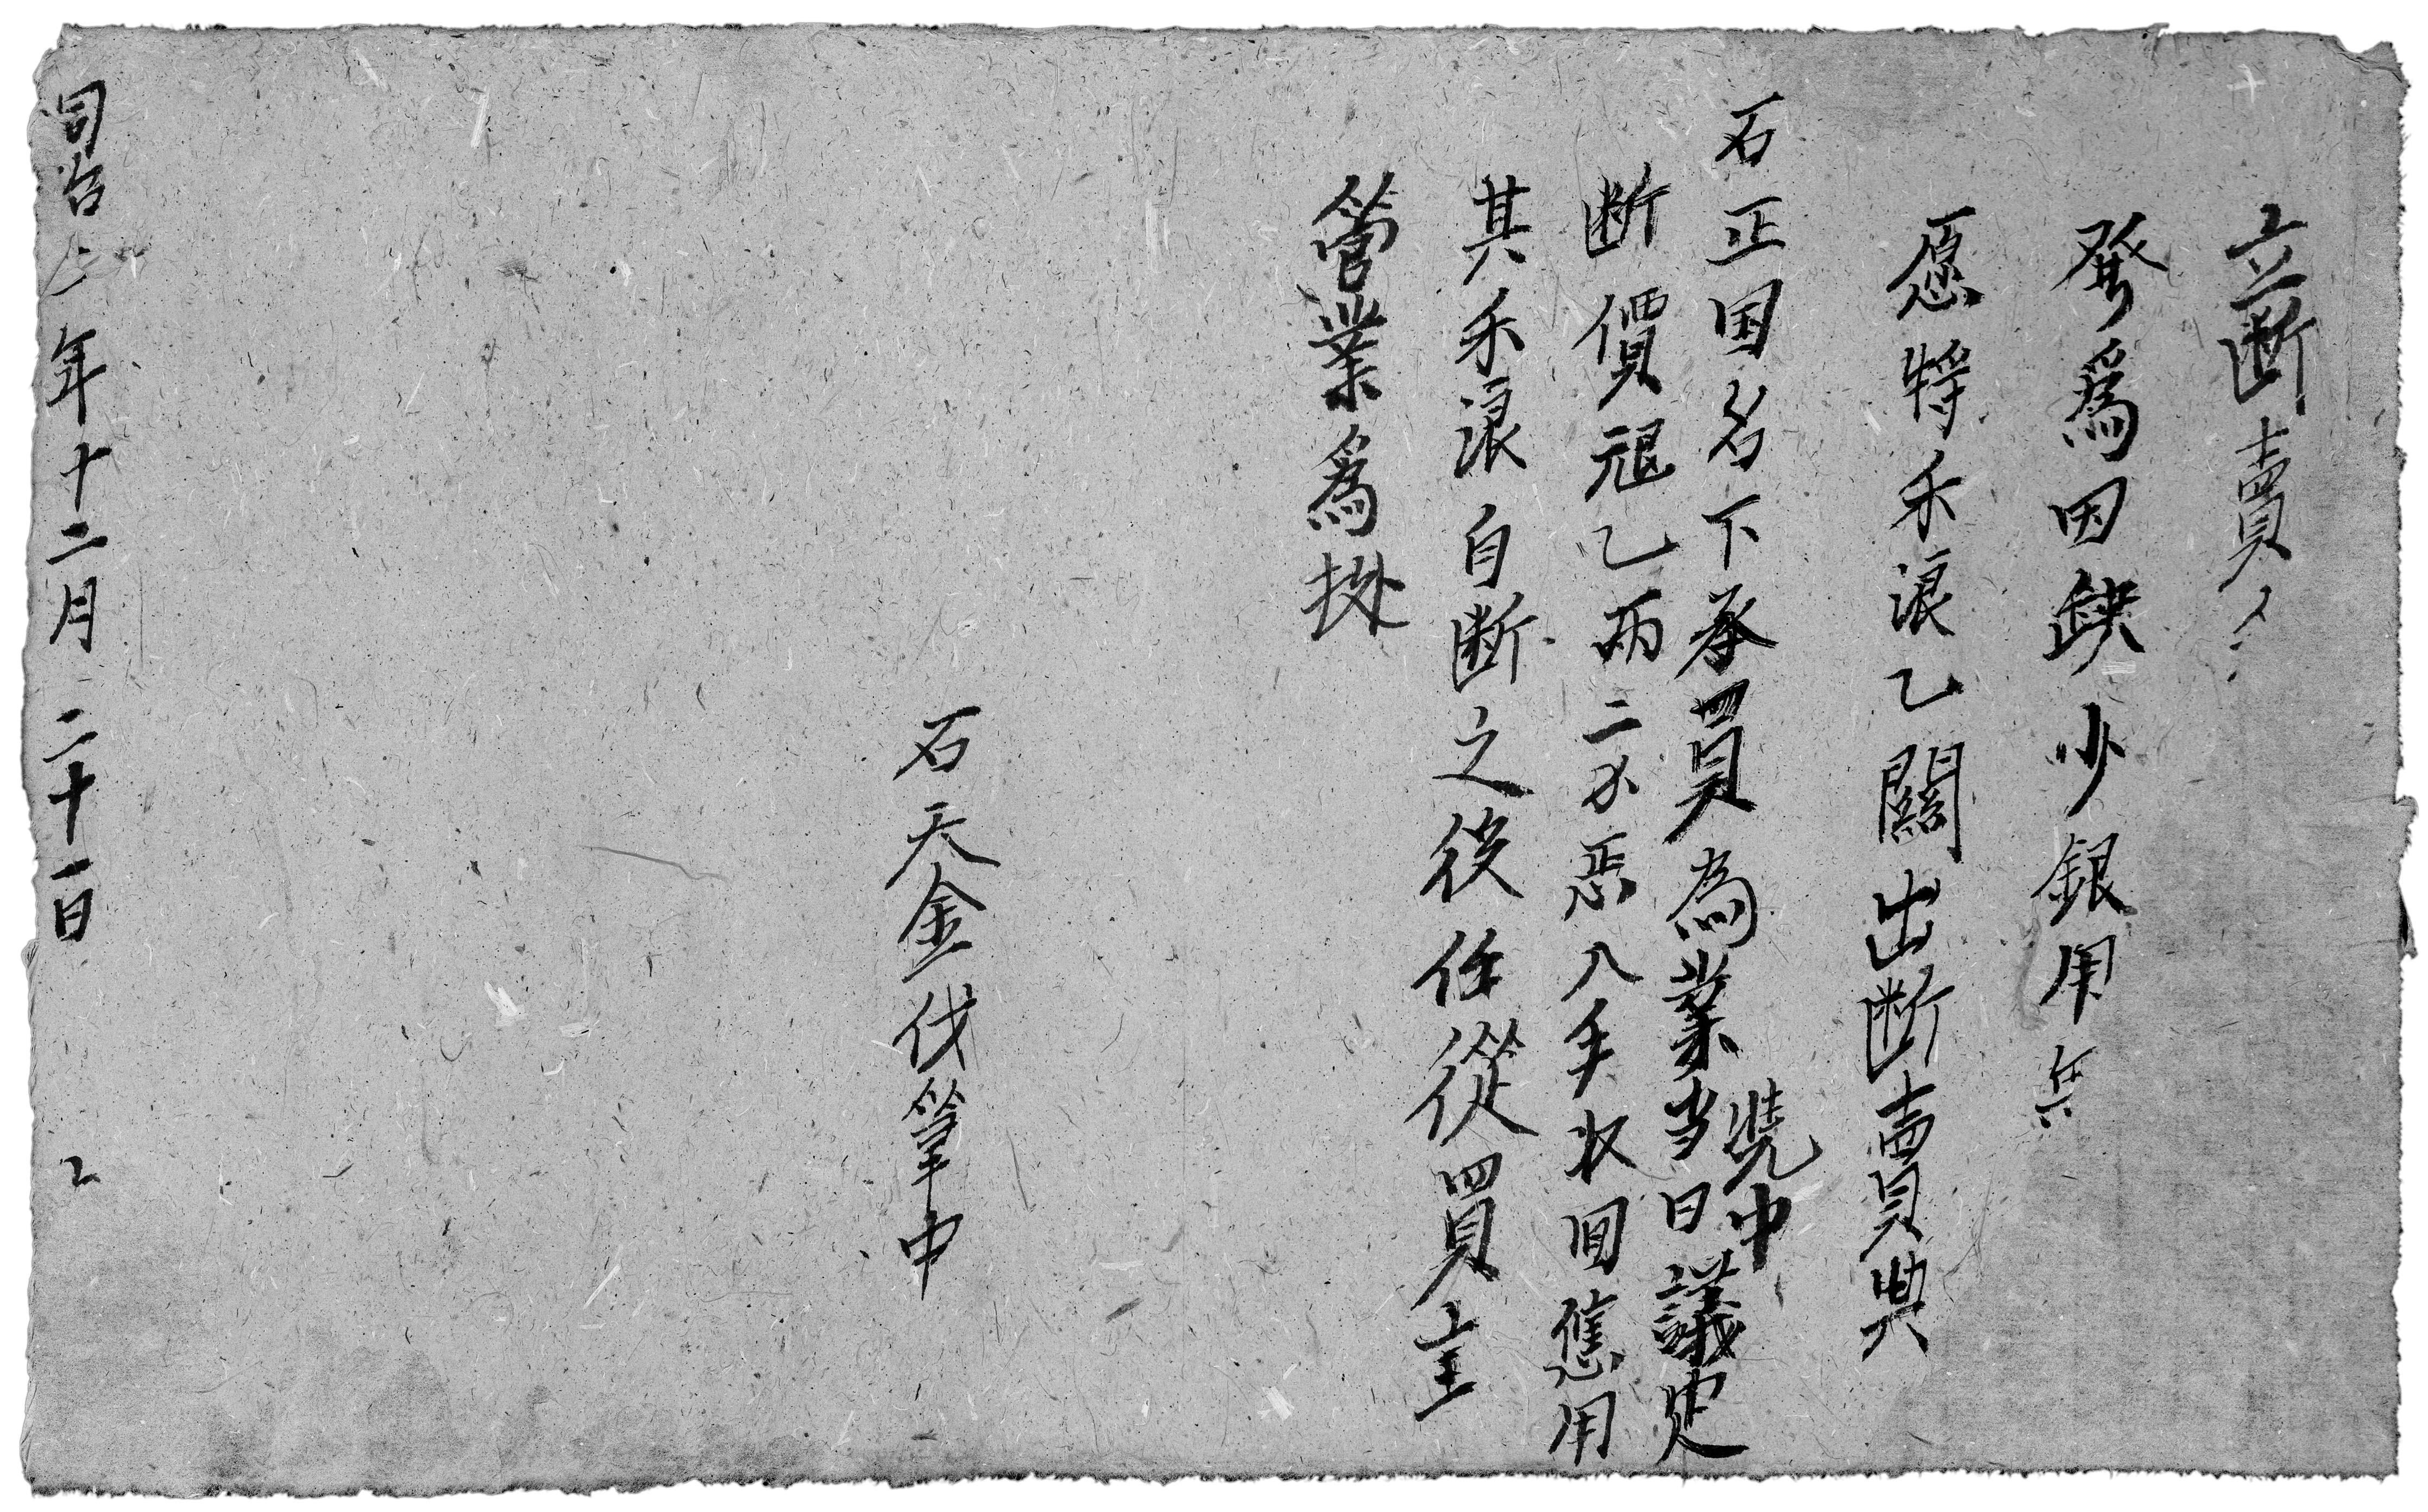 立断賣人
發爲因缺少銀用無
愿将禾浪乙關出断賣與
石正国名下承買為業凴中当日議定
断價冠乙两二分恶入手收回應用
其禾浪自断之後任從買主
管業爲據
石天金伐筆中
同治 年十二月二十一日